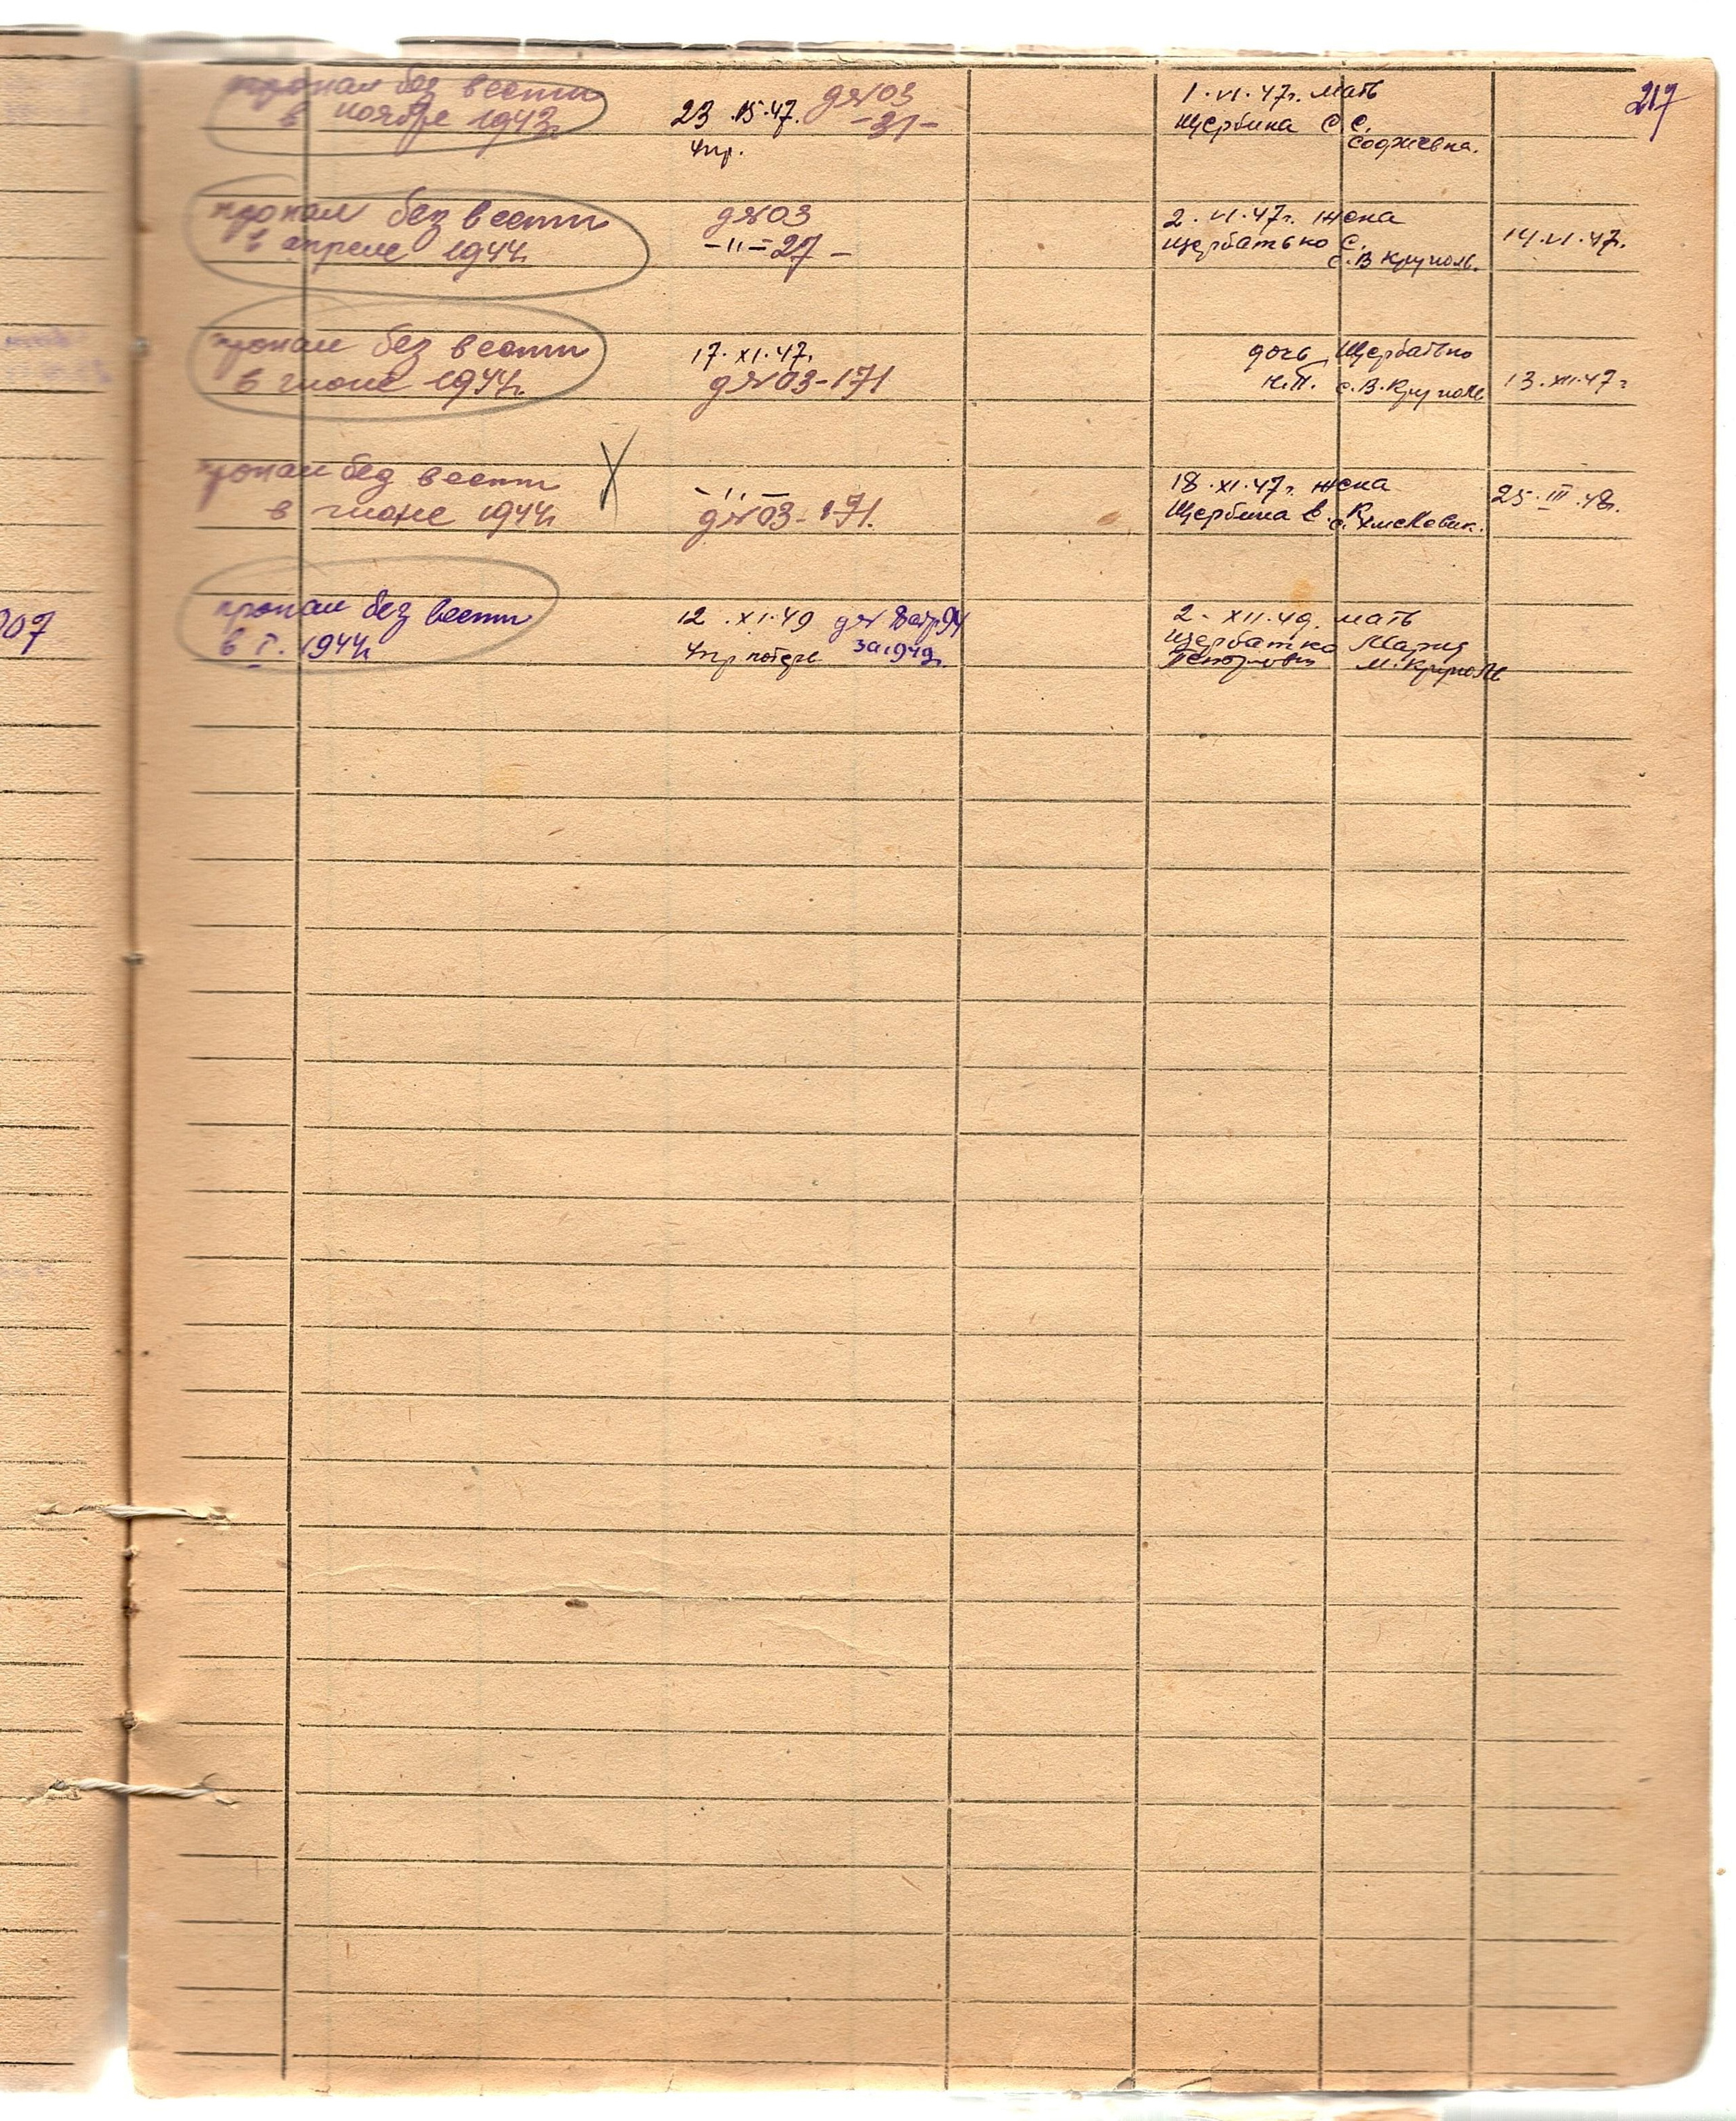 217
пропал без вести
в ноябре 1943г.
23 . 15. 47. д №03
-31-
Упр.
1. VI. 47г. мать
Щербина С С.
пропал без вести
в апреле 1944г.
д №03
-"- 27 -
2. VI. 47г. жена
Щербатько С.
с. В Круполь.
14. VI. 47г.
пропал без вести
в июне 1944г.
17. XI. 47г.
д №03-171
дочь Щербатько
Н.П. с. В. Круполь
13. XII. 47г
пропал без вести
в июне 1944г
- " -
д №03-171.
18. XI. 47г. жена
Щербина В. К.
25. III. 48г.
907
пропал без вести
в I. 1944г
12 . XI. 49 д № 8 стр. 94
Упр потерь за 1949г.
2. XII. 49. мать
Щербатко Мария
М. Круполь